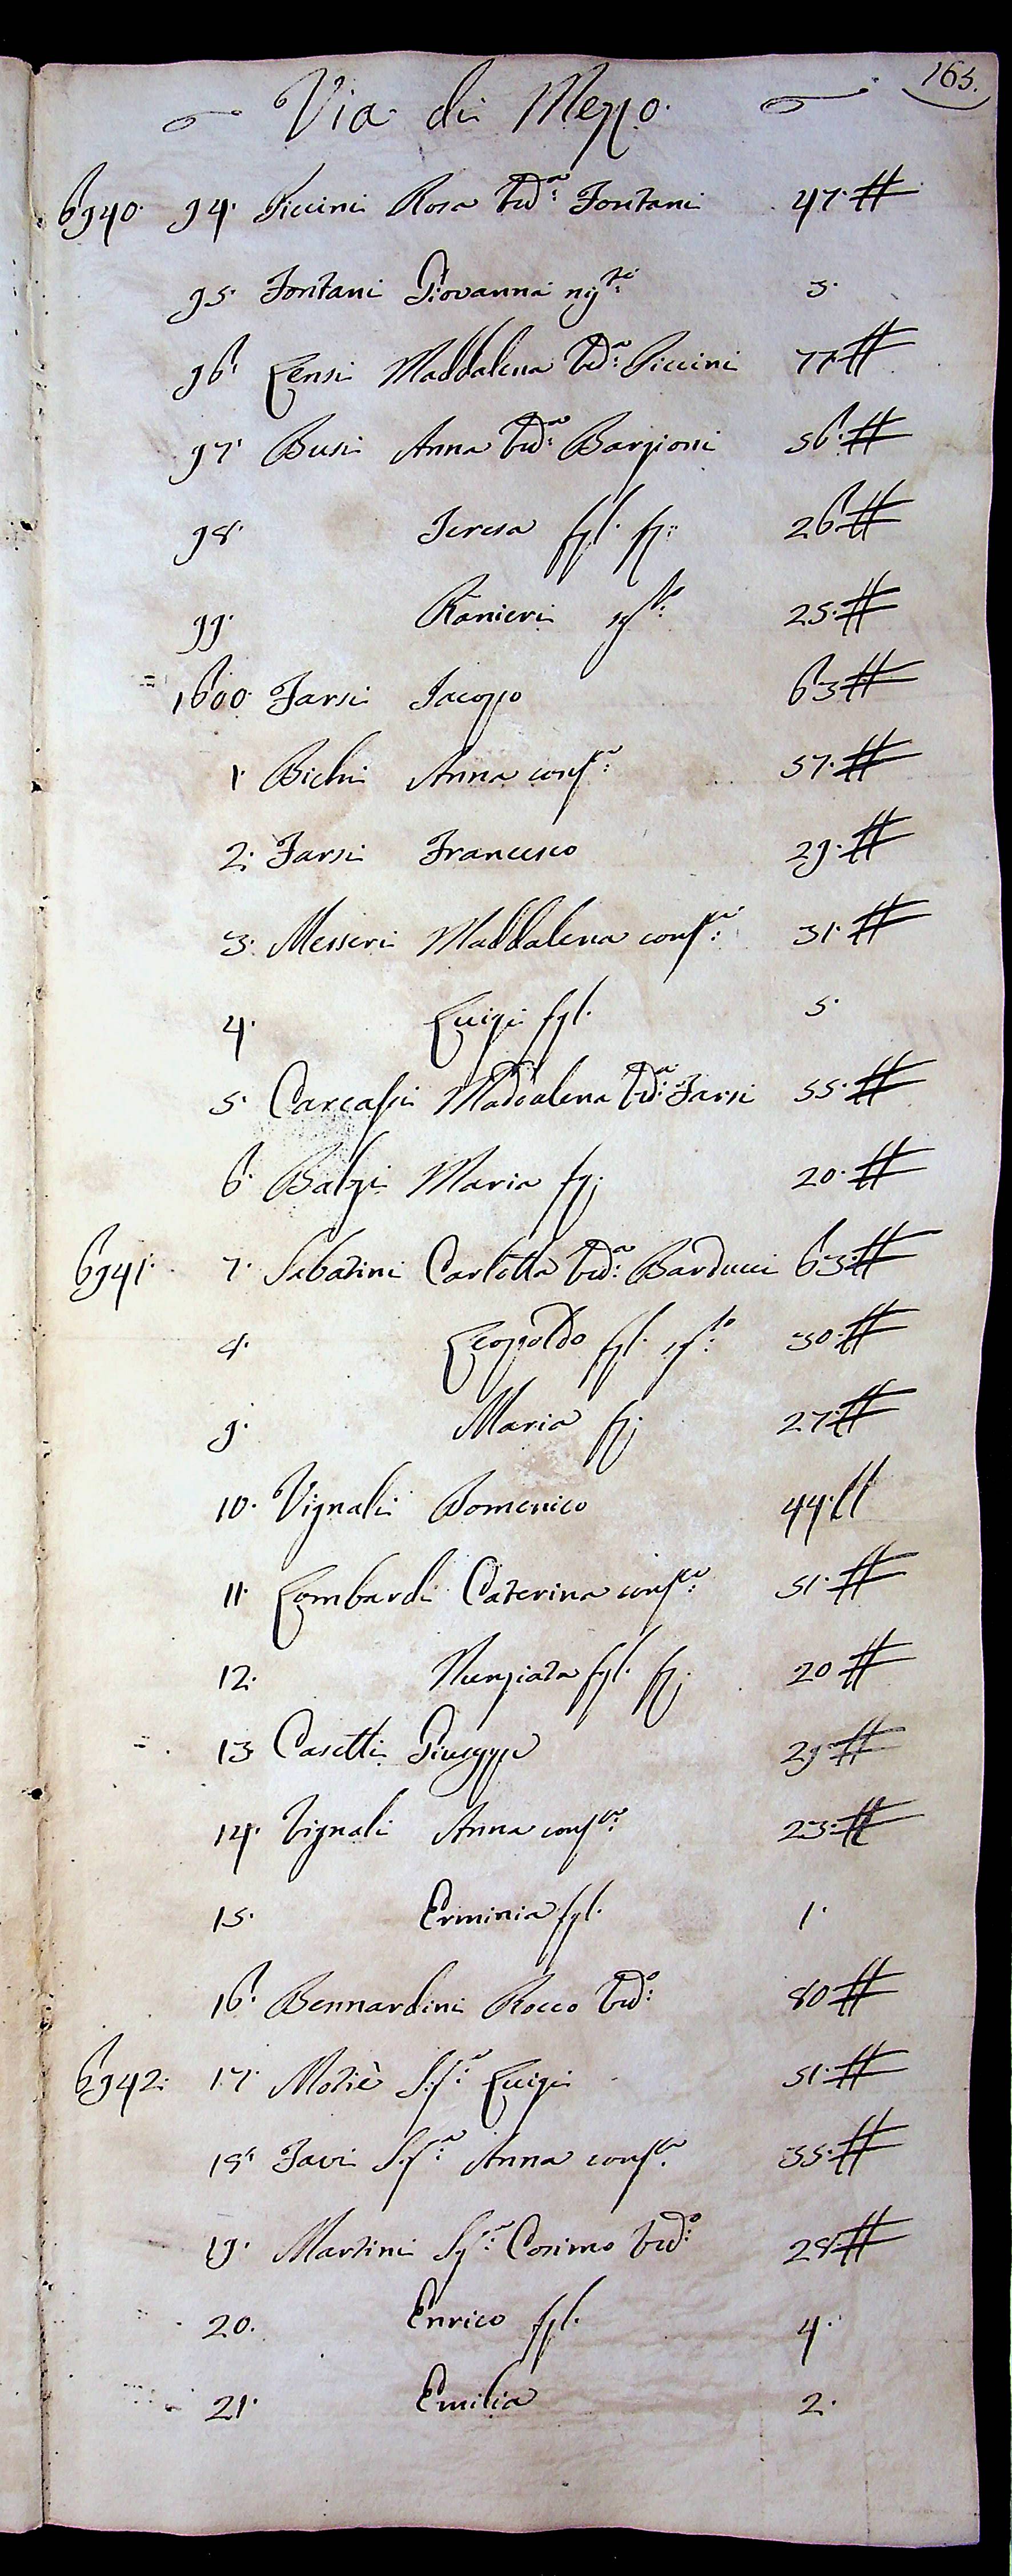 165.
Via di Mezzo
6940. 94. Piccini Rosa Vedª: Fontani 47.#
95. Fontani Giovanna nipᵗᵉ: 3.
96. Censi Maddalena Vedª: Piccini 77.#
97. Busi Anna Vedª: Barzioni 56.#
98. Teresa fgl. 26.#
99. Ranieri 25.#
= 1600. Farsi Jacopo 63.#
1. Bichi Anna consª: 57.#
2. Farsi Francesco 29.#
3. Messeri Maddalena consª: 31.#
4. Luigi fgl. 5.
5. Carcassi Maddalena Vedª: Farsi 55.#
6. Balzi Maria 20.#
6941. 7. Sabatini Carlotta Vedª: Barducci 63.#
8. Leopoldo fgl. 30.#
9. Maria 27.#
10. Vignali Domenico 44.//
11. Lombardi Caterina consª: 51.#
12. Nunziata fgl. 20.#
= 13. Casetti Giuseppe 29.#
14. Vignali Anna consª: 23.#
15. Erminia fgl. 1.
16. Bennardini Rocco Vedº: 80.#
6942. 17. Motiè Luigi 51.#
18. Favi Anna consª: 35.#
19. Martini Cosimo Vedº: 28.#
20. Enrico fgl. 4.
21. Emilia 2.